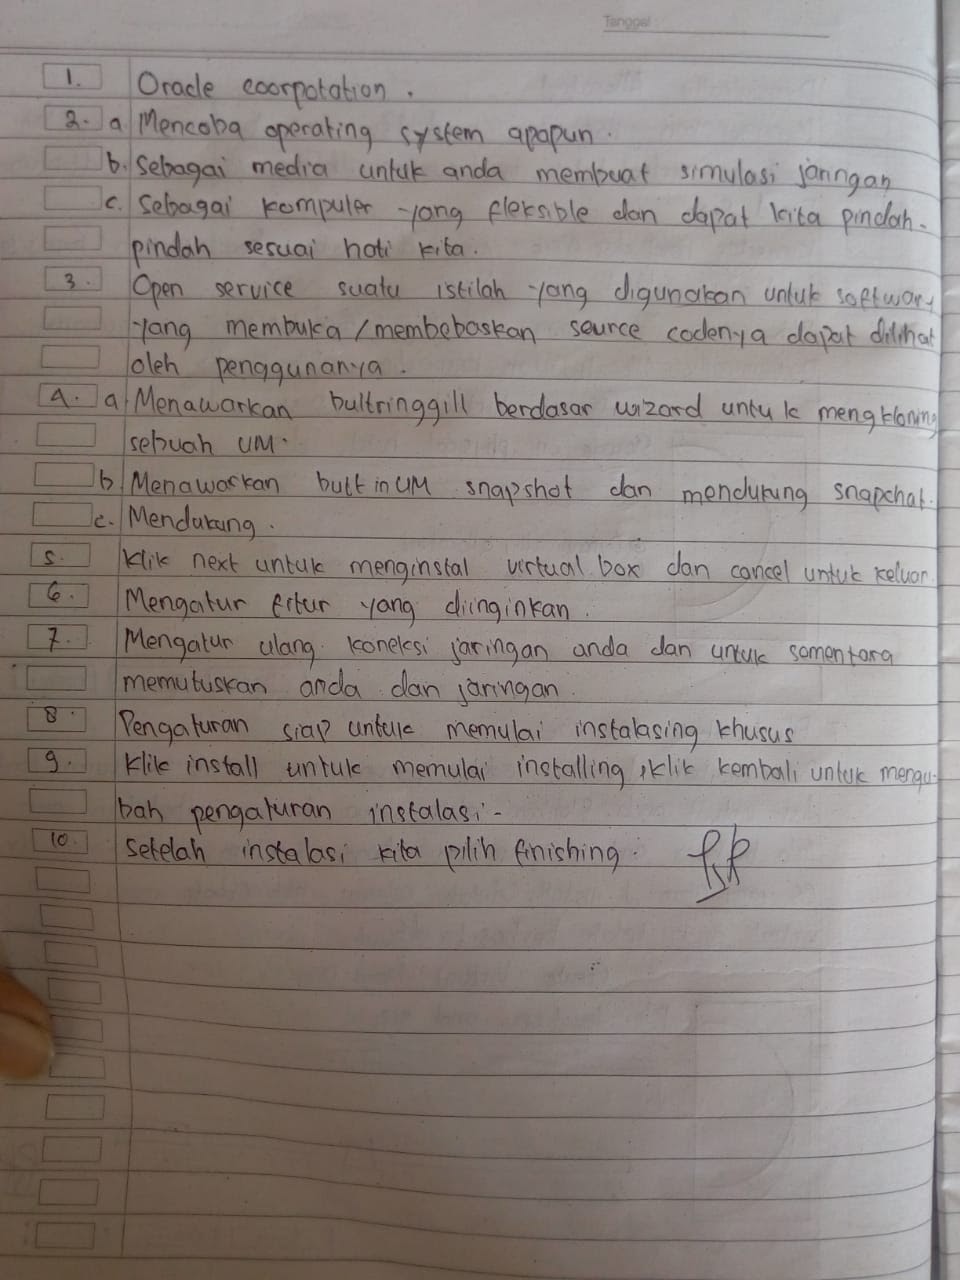 Tanggal
1. Oracle coorpotation.
2. a Mencoba operating system apapun.
b. Sebagai media untuk anda membuat simulasi jaringan
c. Sebagai komputer yang fleksible dan dapat kita pindah-
pindah sesuai hati kita.
3. Open service suatu istilah yang digunakan untuk softwar
yang membuka/membebaskan source codenya dapat dilihat
oleh penggunanya.
4. a Menawarkan bultringgill berdasar wizard untuk mengkloning
sebuah UM.
b Menawarkan bult in UM snapshot dan mendukung snapchat.
c. Mendukung.
5. Klik next untuk menginstal virtual box dan cancel untuk keluar.
6. Mengatur fitur yang diinginkan.
7. Mengatur ulang koneksi jaringan anda dan untuk sementara
memutuskan anda dan jaringan.
8. Pengaturan siap untuk memulai instalasing khusus
9. Klik install untuk memulai installing, klik kembali untuk mengu-
bah pengaturan instalasi-
10. Setelah instalasi kita pilih finishing.